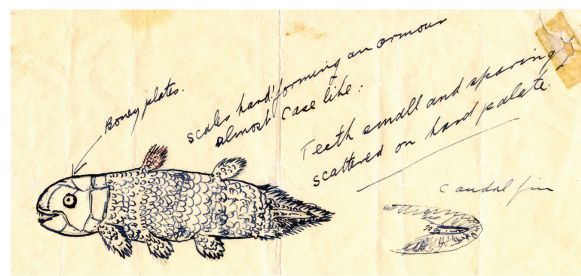 Boney plates.
scales hard forming an armour
almost case like.
Teeth small and sparing
scattered on hard palate
Caudal fin